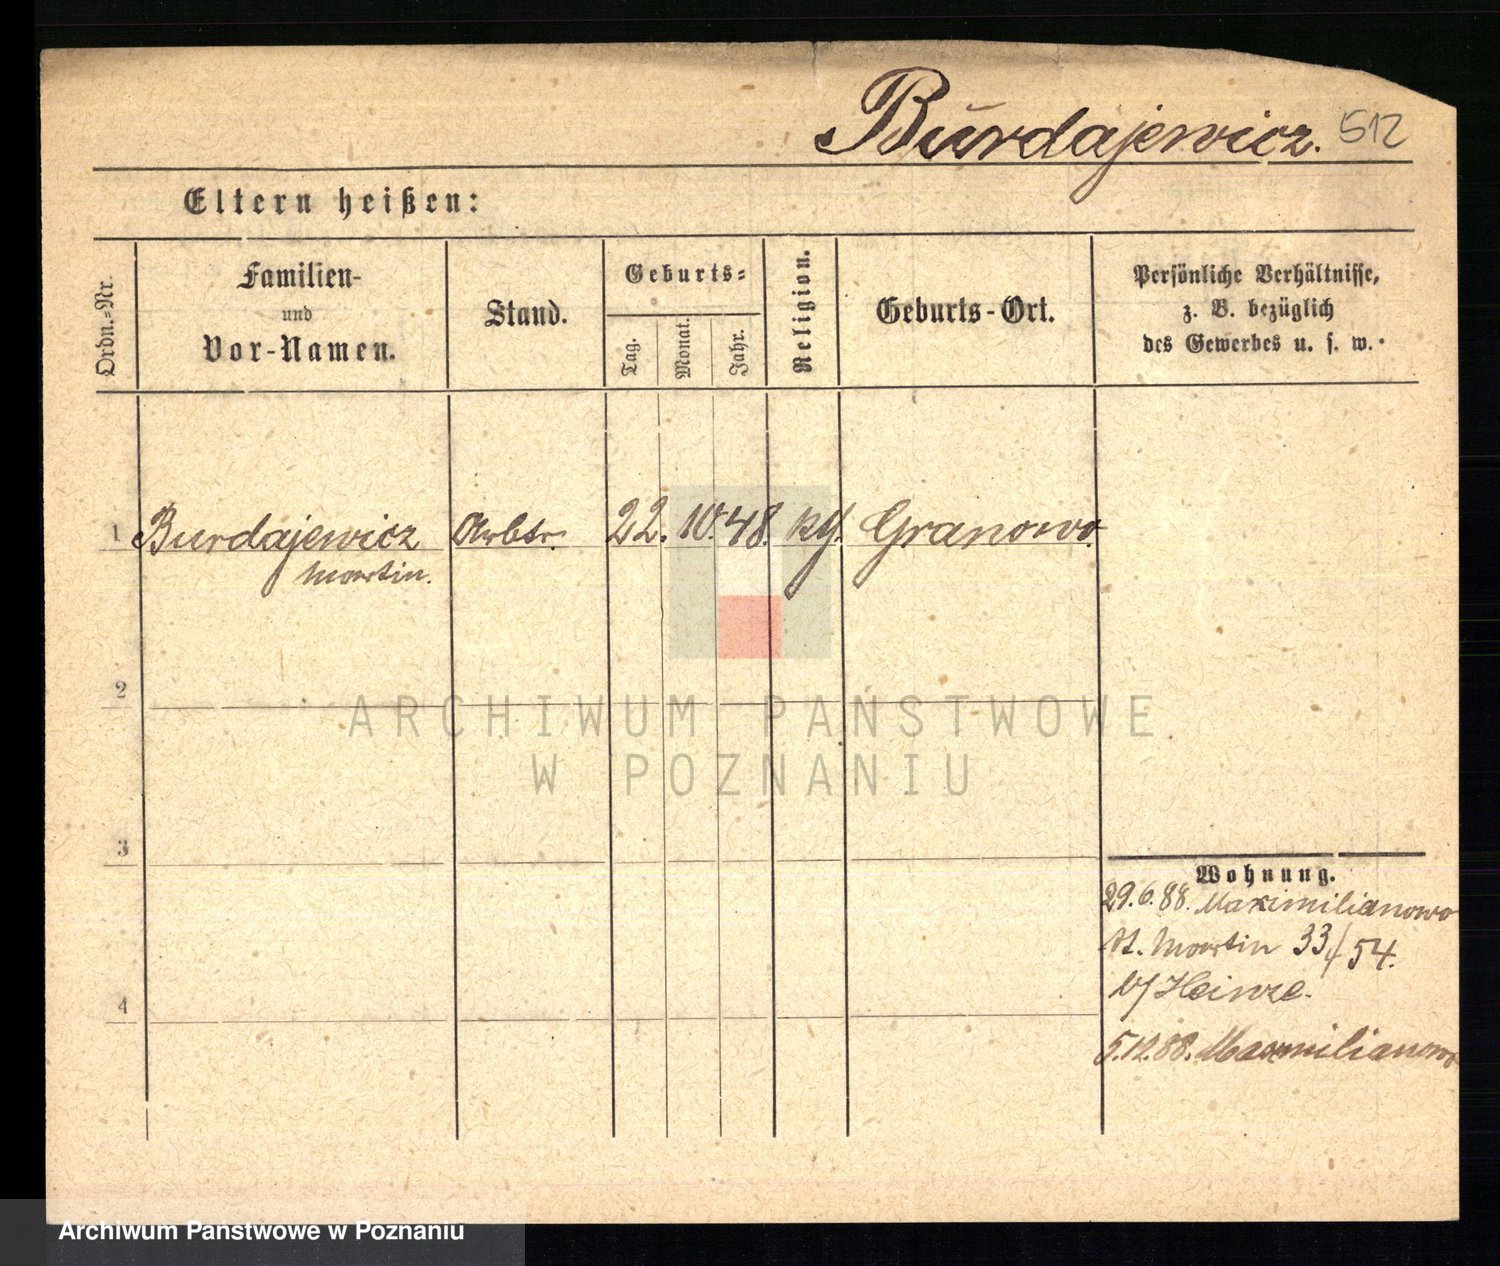 Burdajewicz. 512
Eltern heißen:
Ordn.-Nr.
Familien-
und
Vor-Namen.
Stand.
Geburts-
Tag.
Monat.
Jahr.
Religion.
Geburts-Ort.
Persönliche Verhältnisse,
z. B. bezüglich
des Gewerbes u. s. w.
1 Burdajewicz Arbtr. 22. 10. 48. kth. Granowo
Martin.
2
3
4
Wohnung.
29.6.88. Maximilianowo
St. Martin 33/54.
b/ Heinze.
5.12.88. Maxmilianowo
ARCHIWUM PAŃSTWOWE
W POZNANIU
Archiwum Państwowe w Poznaniu